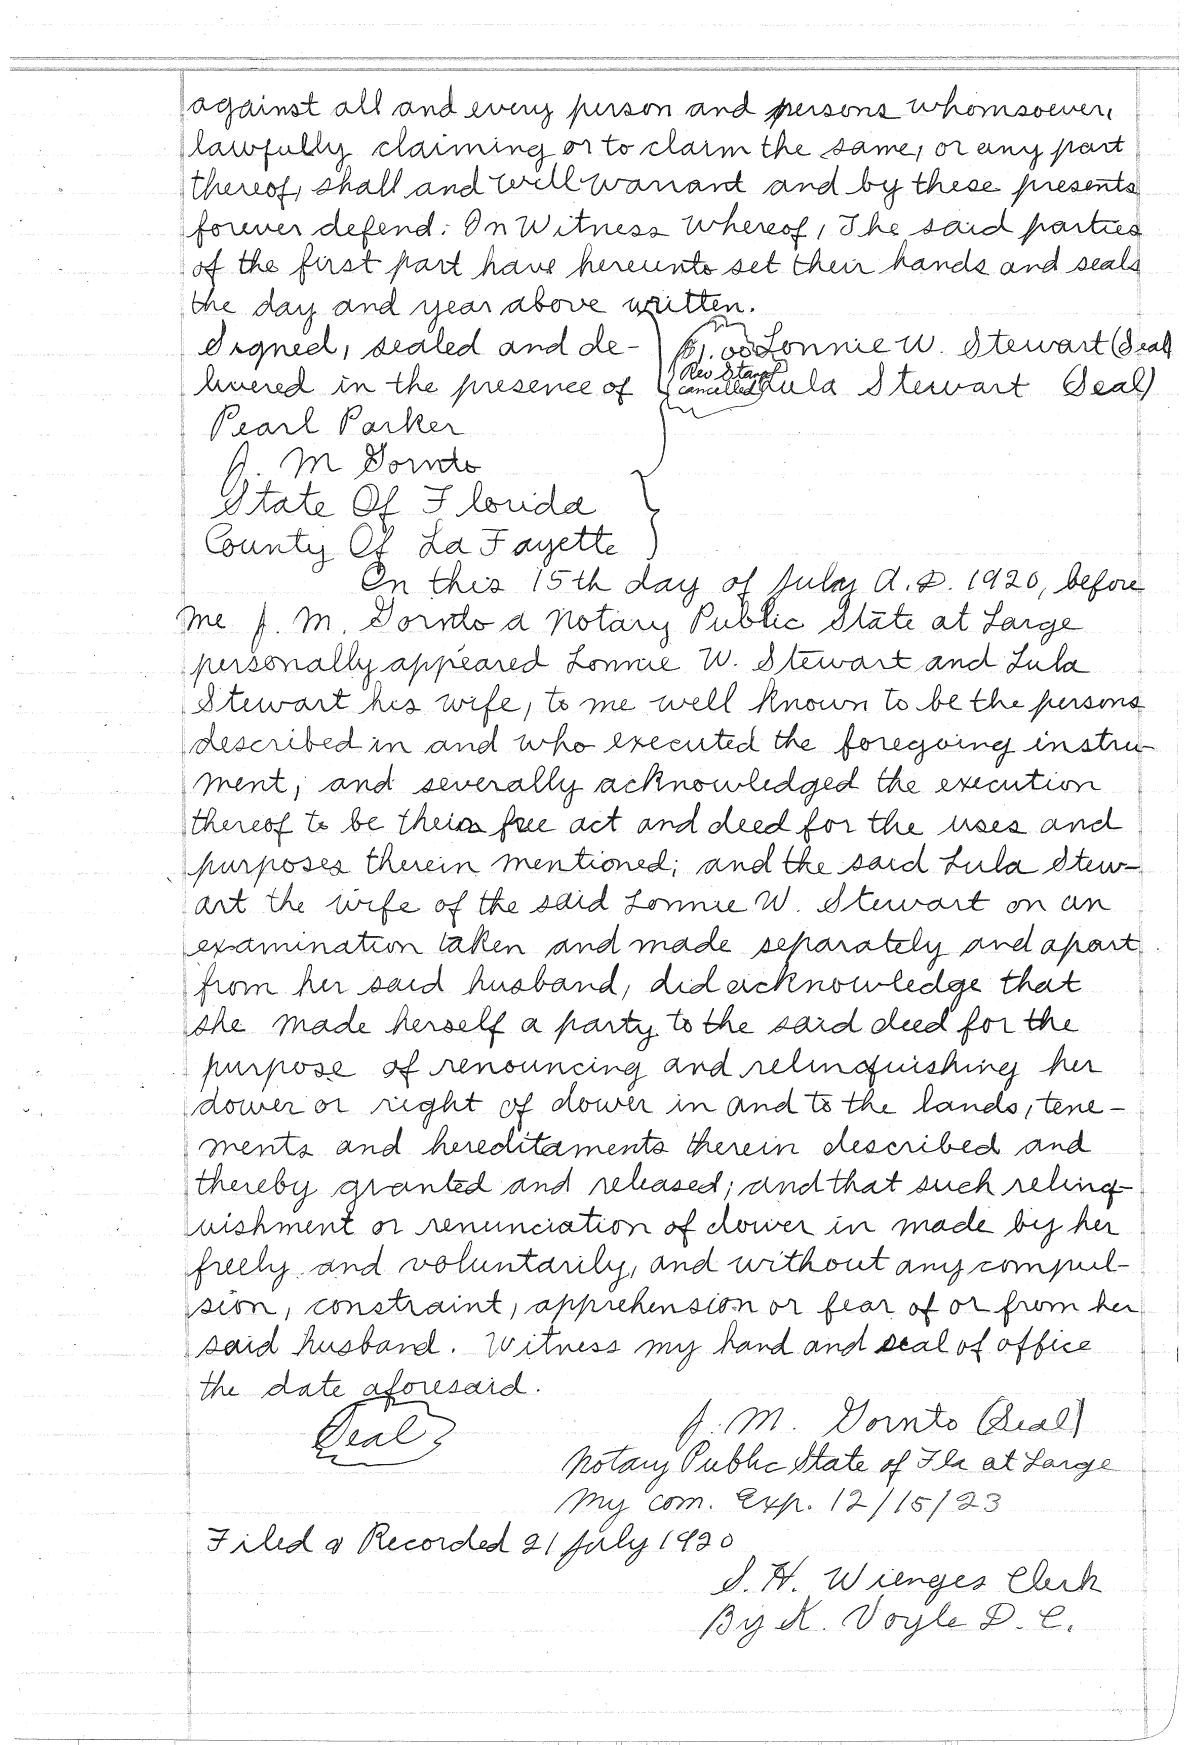 against all and every person and persons whomsoever,
lawfully claiming or to claim the same, or any part
thereof, shall and will warrant and by these presents
forever defend. In Witness whereof, The said parties
of the first part have hereunto set their hands and seals
the day and year above written.
Signed, sealed and de-
livered in the presence of
$1.00
Rev Stamp
cancelled
Lonnie W. Stewart (Seal)
Lula Stewart (Seal)
Pearl Parker
J. M Gornto
State Of Florida
County Of La Fayette
On this 15th day of July A.D. 1920, before
me J. M. Gornto a Notary Public State at Large
personally appeared Lonnie W. Stewart and Lula
Stewart his wife, to me well known to be the persons
described in and who executed the foregoing instru-
ment, and severally acknowledged the execution
thereof to be their free act and deed for the uses and
purposes therein mentioned; and the said Lula Stew-
art the wife of the said Lonnie W. Stewart on an
examination taken and made separately and apart
from her said husband, did acknowledge that
she made herself a party to the said deed for the
purpose of renouncing and relinquishing her
dower or right of dower in and to the lands, tene-
ments and hereditaments therein described and
thereby granted and released; and that such relinq-
uishment or renunciation of dower in made by her
freely and voluntarily, and without any compul-
sion, constraint, apprehension or fear of or from her
said husband. Witness my hand and seal of office
the date aforesaid.
Seal
J. M. Gornto (Seal)
Notary Public State of Fla at Large
My com. Exp. 12/15/23
Filed & Recorded 21 July 1920
S. H. Wienges Clerk
By K. Voyle D. C.